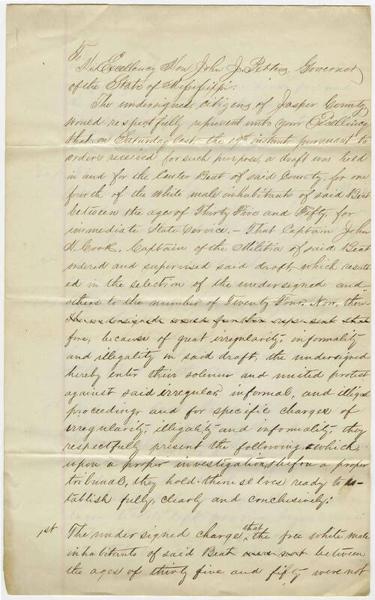 To
His Excellency Hon John J. Pettus, Governor
of the State of Mississippi.
The undersigned citizens of Jasper County
would respectfully represent unto your Excellency
that on Saturday last the 19th instant pursuant to
orders received for such purpose, a draft was held
in and for the Center Beat of said County, for one
fourth of the white male inhabitants of said Beat
between the ages of Thirty Five and Fifty, for
immediate State service. - That Captain John
Cook, Captain of the Militia of said Beat
ordered and supervised said draft which result
ed in the selection of the undersigned and
others to the number of Twenty Four. Now, there
the undersigned would further represent that
fore, because of great irregularity, informality
and illegality in said draft, the undersigned
hereby enter their solemn and united protest
against said irregular, informal, and illegal
proceedings and for specific charges of
irregularity, illegality and informality, they
respectfully present the following which
upon a proper investigation, before a proper
tribunal, they hold themselves ready to es-
tablish fully, clearly and conclusively:
1st The undersigned charge that the free white male
inhabitants of said Beat between
the ages of thirty five and fifty were not